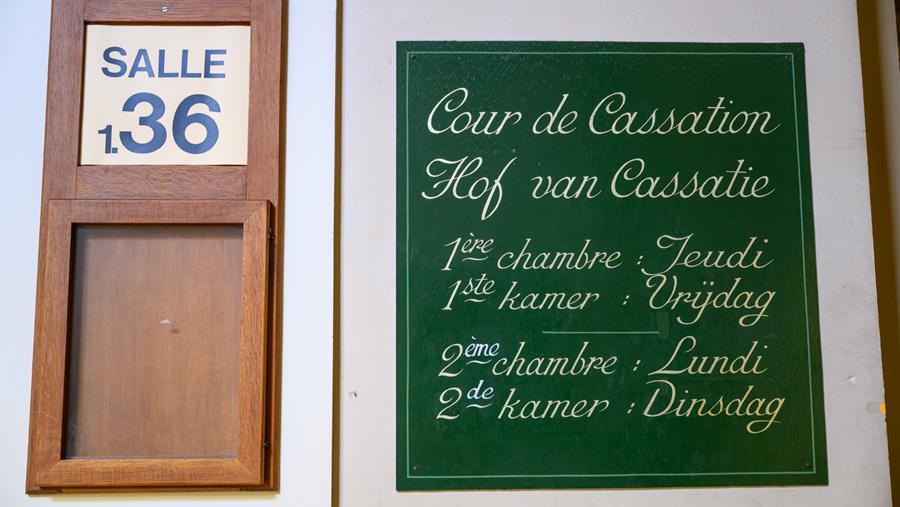 SALLE
1.36
Cour de Cassation
Hof van Cassatie
1ère chambre : Jeudi
1ste kamer : Vrijdag
2ème chambre : Lundi
2de kamer : Dinsdag